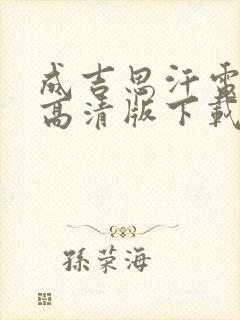 成吉思汗電
高清版下載
孫荣海